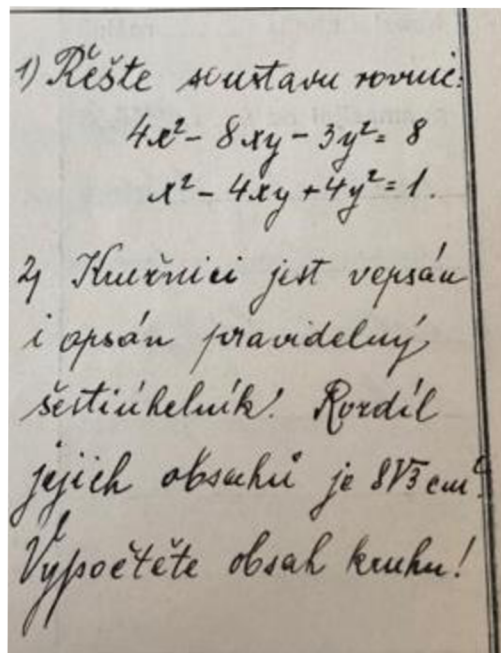 1) Řešte soustavu rovnic:
4x² - 8xy - 3y² = 8
x² - 4xy + 4y² = 1.
2) Kružnici jest vepsán
i opsán pravidelný
šestiúhelník! Rozdíl
jejich obsahů je 8√3 cm².
Vypočtěte obsah kruhu!